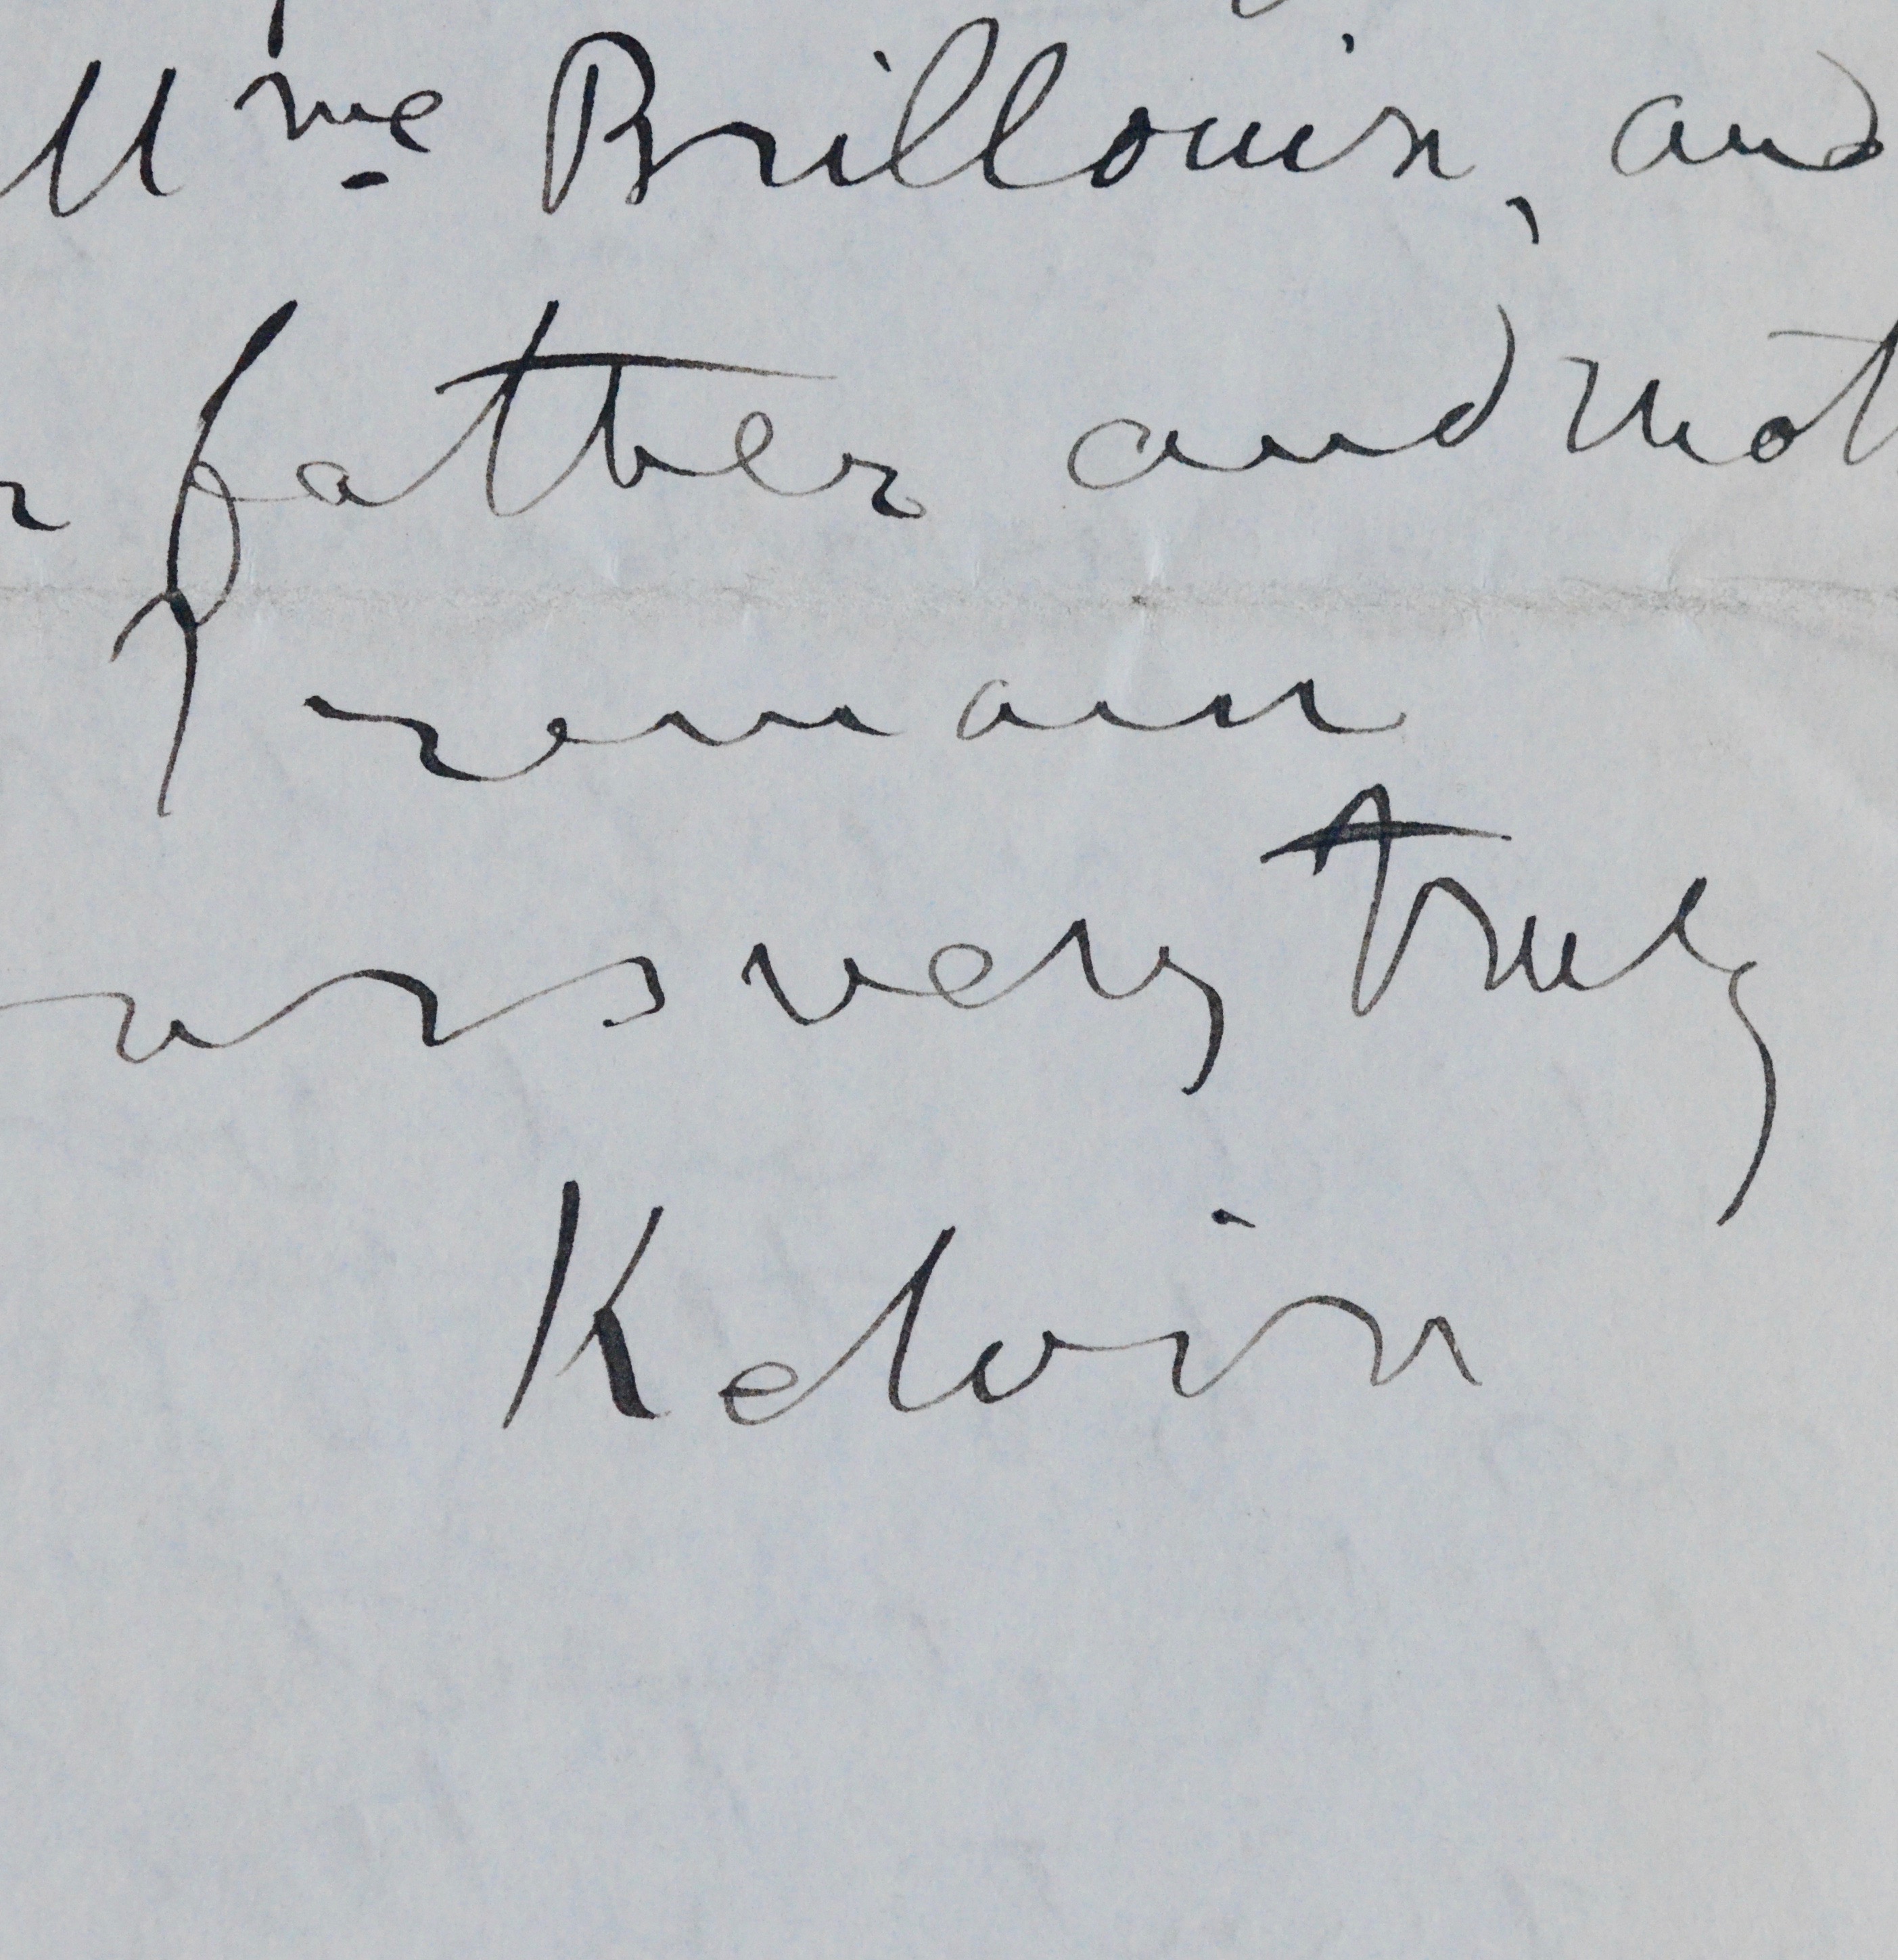 Mme Brillouin, and
r father and mot
I remain
urs very truly
Kelvin